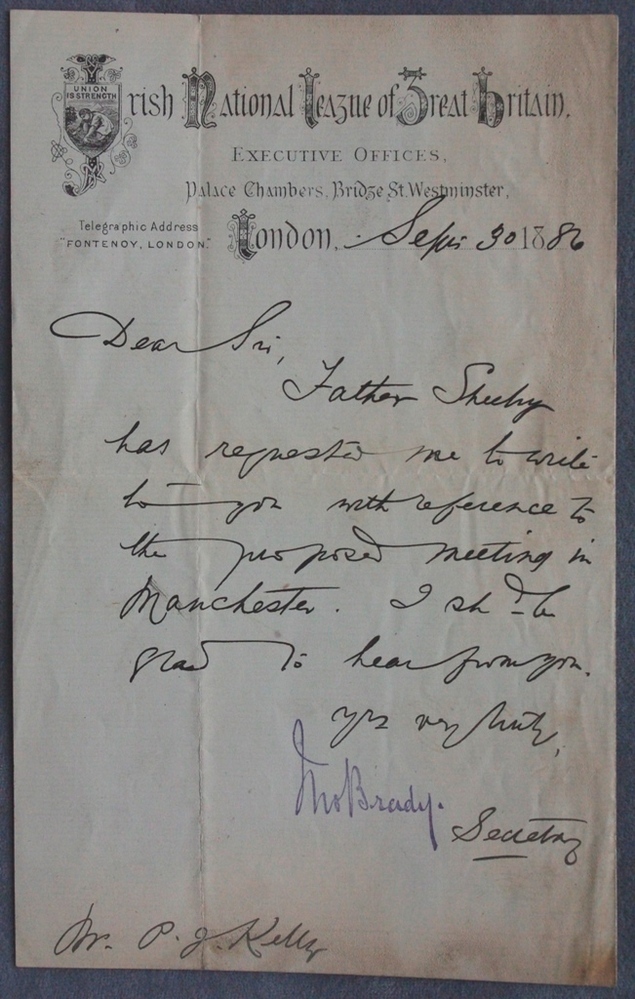 UNION
IS STRENGTH
Irish National League of Great Britain.
EXECUTIVE OFFICES,
Palace Chambers, Bridge St. Westminster,
Telegraphic Address
"FONTENOY, LONDON."
London, Sept 30 1886
Dear Sir,
Father Sheehy
has requested me to write
to you with reference to
the proposed meeting in
Manchester. I shd be
glad to hear from you.
Yrs very truly,
Brady.
Secretary
Mr. P. J. Kelly